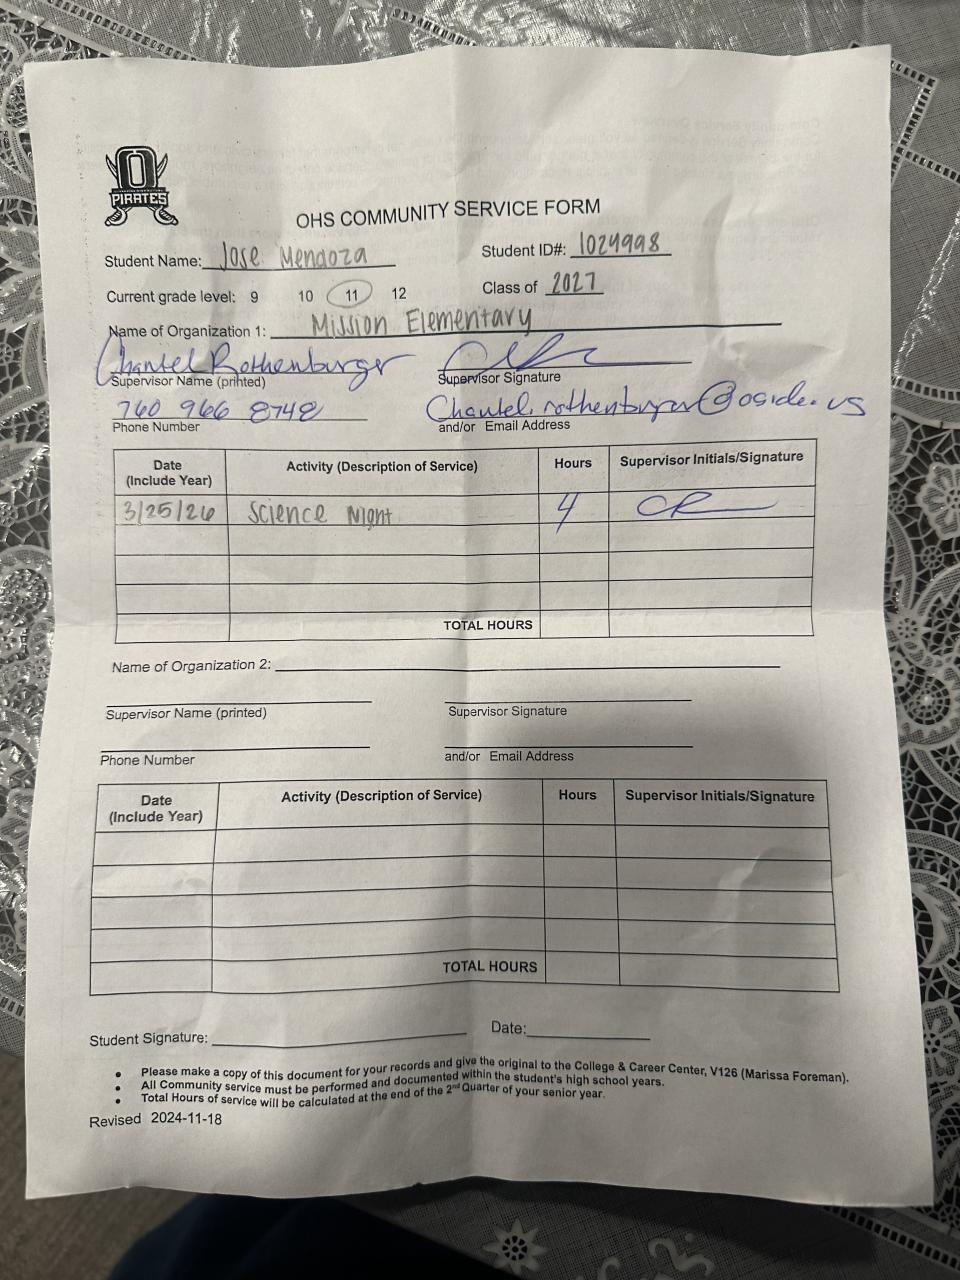 O
PIRATES
OHS COMMUNITY SERVICE FORM
Student Name: Jose Mendoza Student ID#: 1024998
Current grade level: 9 10 11 12 Class of 2027
Name of Organization 1: Mission Elementary
Chantel Rothenburger
Supervisor Name (printed) Supervisor Signature
760 966 8748 Chantel.rothenburger@oside.us
Phone Number and/or Email Address
Date (Include Year) Activity (Description of Service) Hours Supervisor Initials/Signature
3/25/26 Science Night 4 CR
TOTAL HOURS
Name of Organization 2:
Supervisor Name (printed) Supervisor Signature
Phone Number and/or Email Address
Date (Include Year) Activity (Description of Service) Hours Supervisor Initials/Signature
TOTAL HOURS
Student Signature: Date:
• Please make a copy of this document for your records and give the original to the College & Career Center, V126 (Marissa Foreman).
• All Community service must be performed and documented within the student's high school years.
• Total Hours of service will be calculated at the end of the 2nd Quarter of your senior year.
Revised 2024-11-18